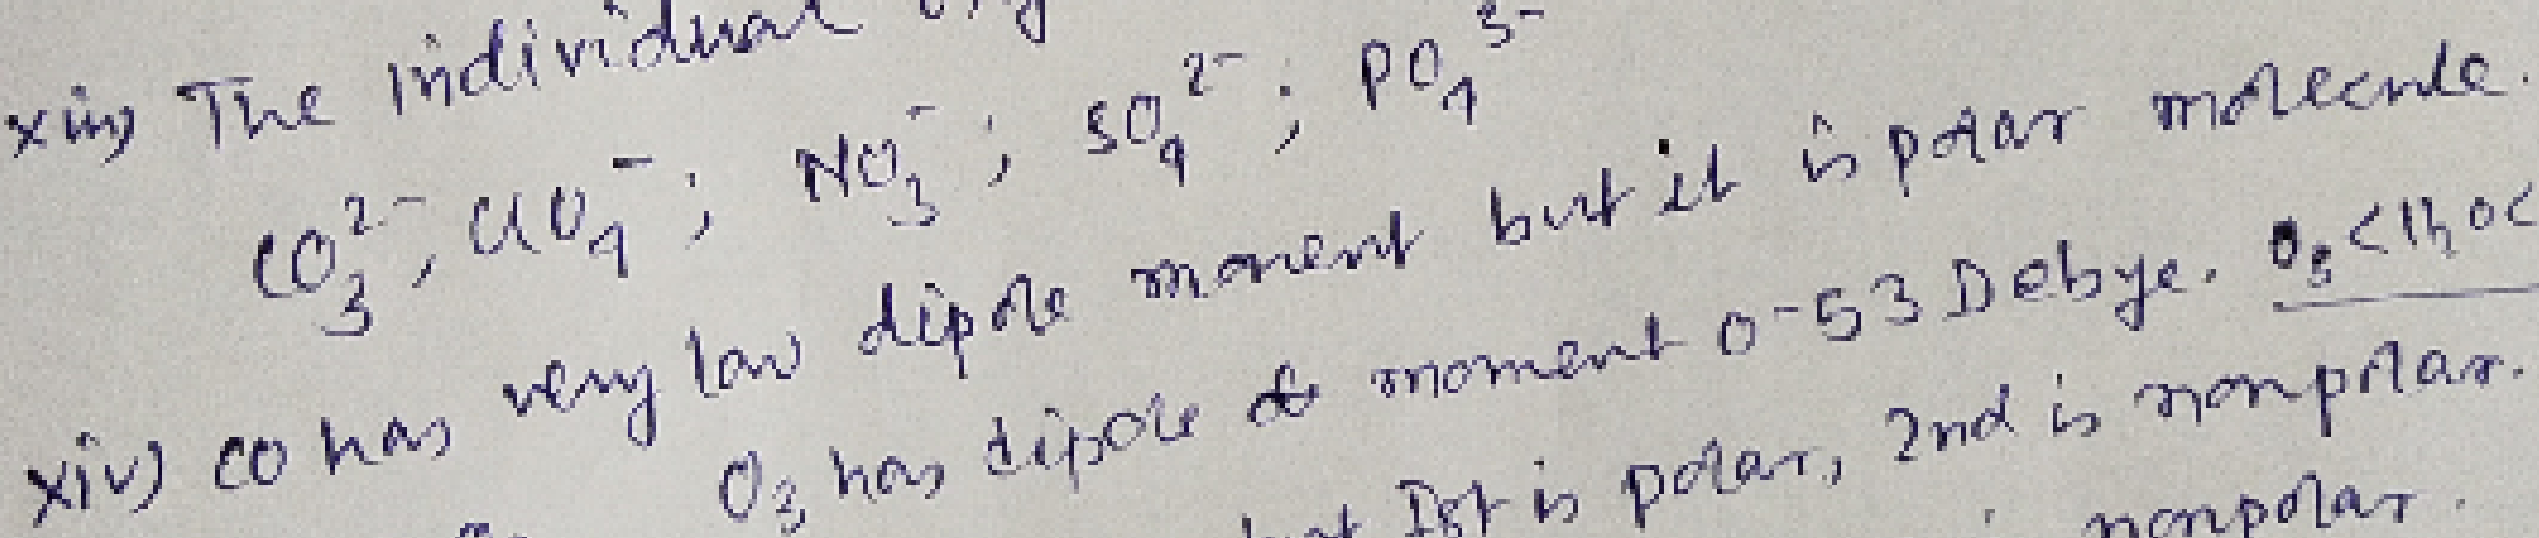 xiii) The individual
CO₃²⁻, ClO₄⁻; NO₃⁻; SO₄²⁻; PO₄³⁻
xiv) CO has very low dipole moment but it is polar molecule.
O₃ has dipole moment 0-53 Debye. O₃ <
but Ist is polar, 2nd is nonpolar.
nonpolar.